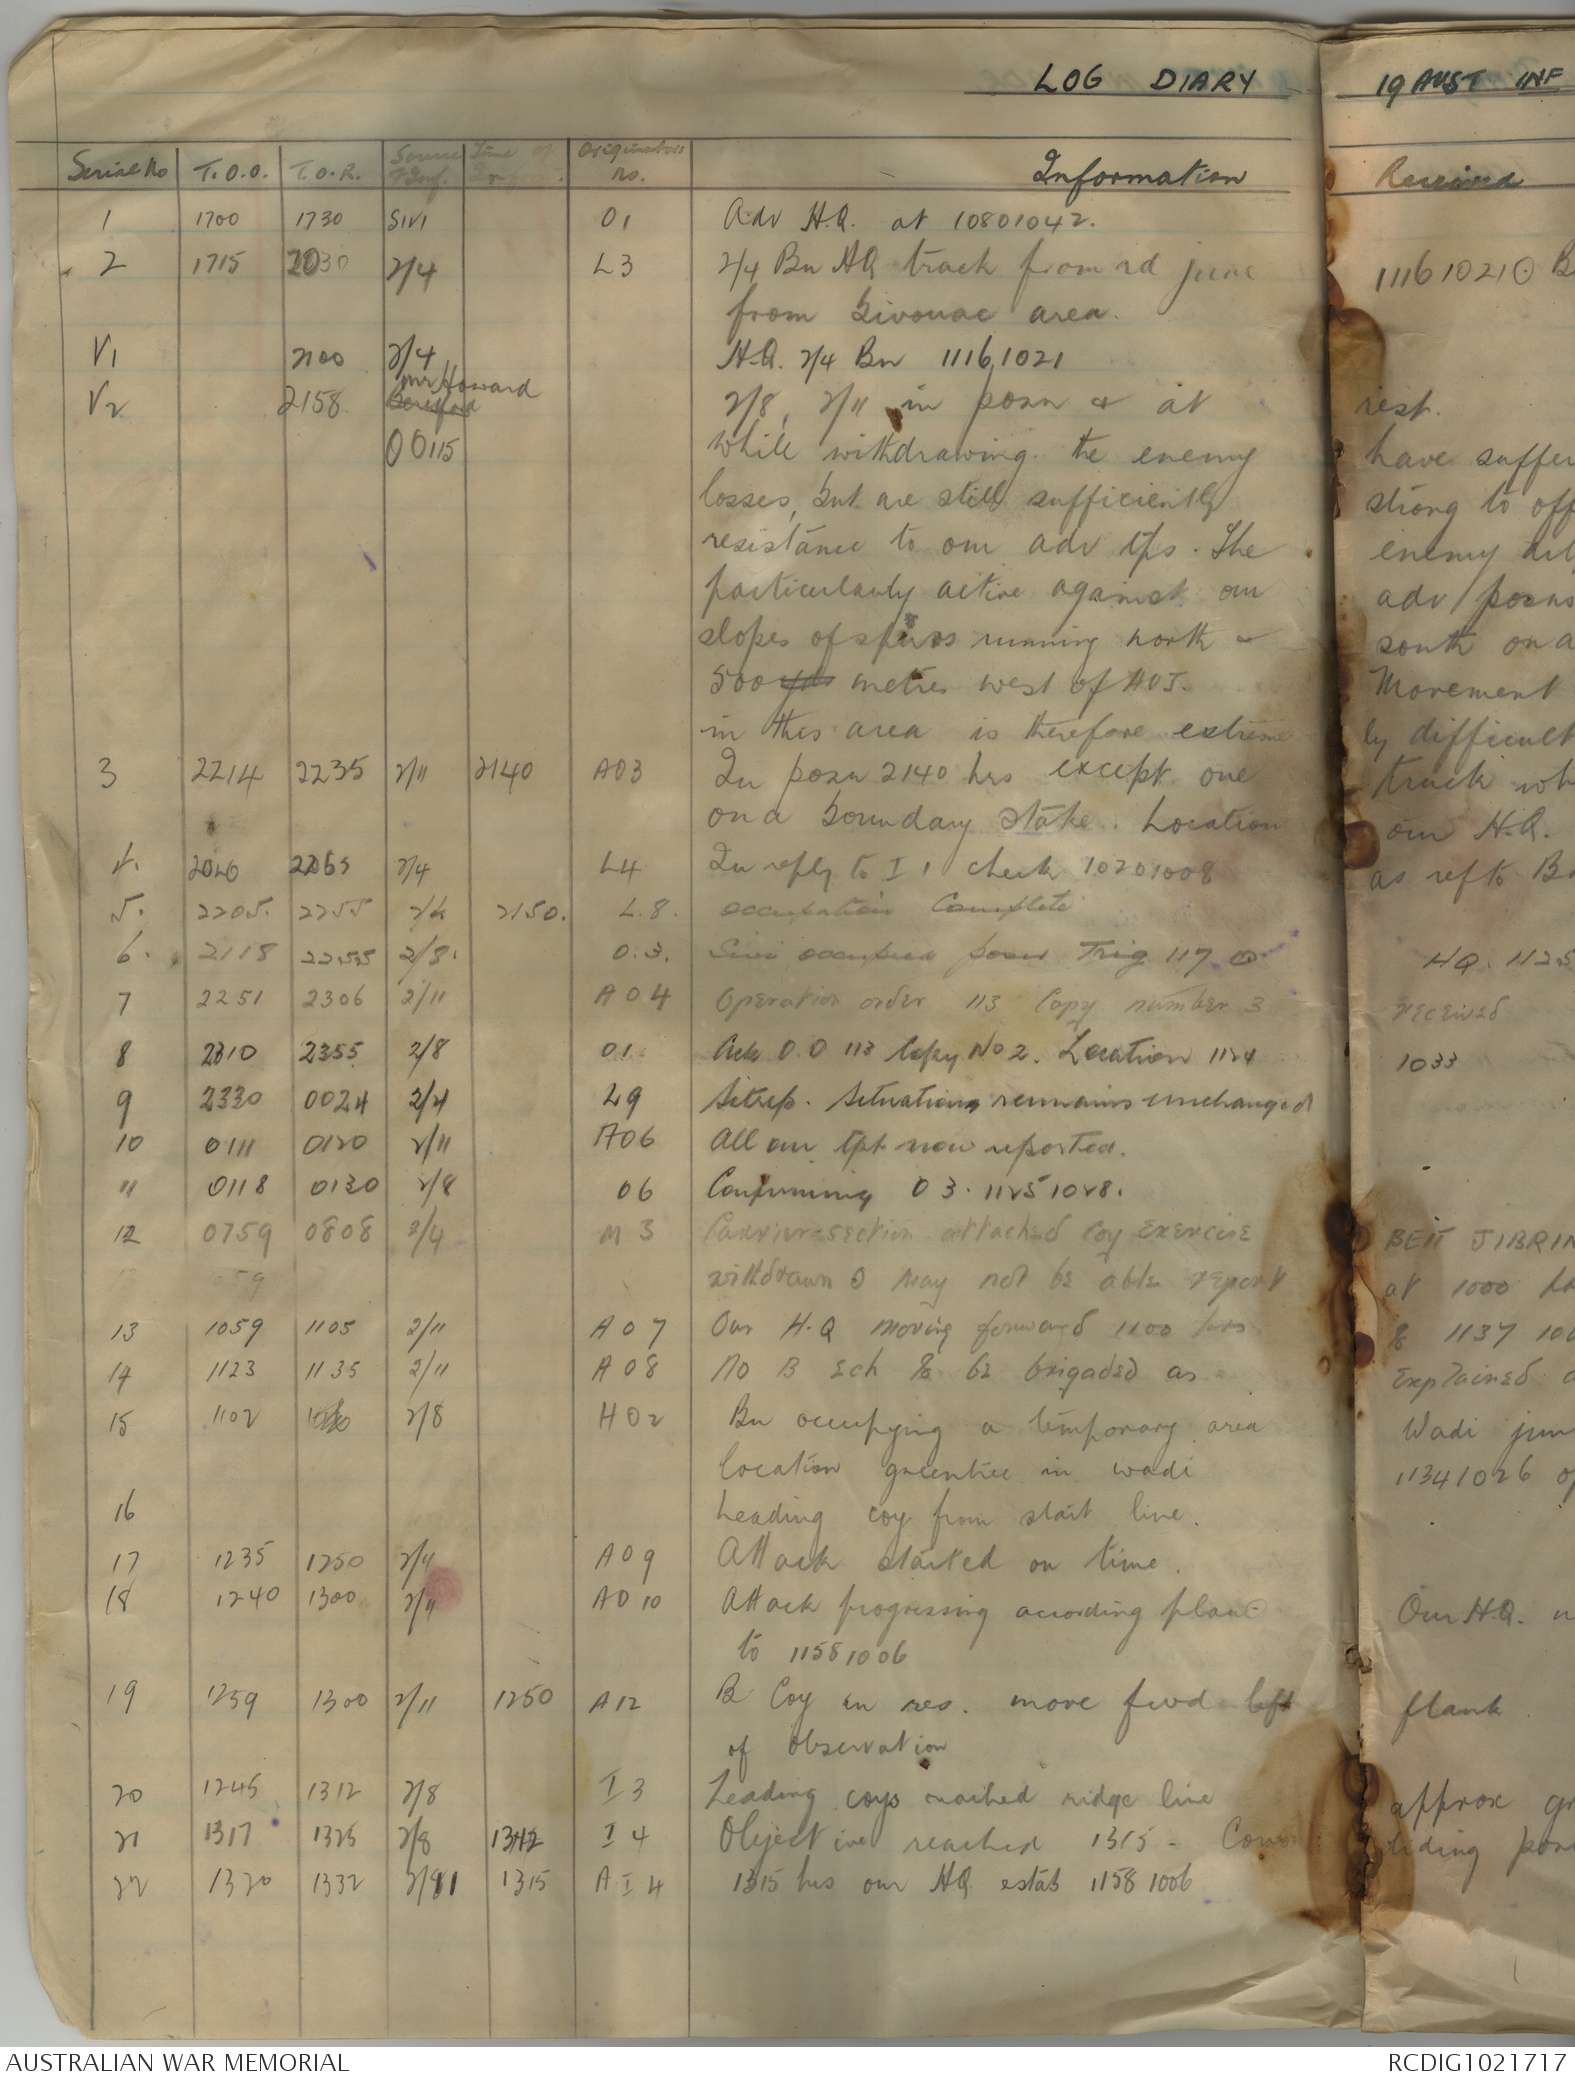 LOG DIARY 19 AUST INF
Serial No T.O.O. T.O.R. Source Inf. Time of Originators No. Information Received
1 1700 1730 SIVI O1 Adv H.Q. at 10801042.
2 1715 2030 2/4 L3 2/4 Bn HQ track from rd junc 11161021 O B
from bivouac area.
V1 2100 2/4 H.Q. 2/4 Bn 11161021
V2 2158 Mr Howard 2/8, 2/11 in posn & at rest.
OO115 while withdrawing. the enemy have suffer
losses, but are still sufficiently strong to off
resistance to our adv tps. The enemy
particularly active against our adv posns
slopes of spurs running north & south on a
500 yds metres west of HQI. Movement
in this area is therefore extreme ly difficult
3 2214 2235 2/11 2140 A03 In posn 2140 hrs except one truck wh
on a boundary stake. Location our H.Q.
2/4 L4 In reply to I 1 check 10201008 as ref to B
5. 2205. 2255 2/4 2150. L.8. occupation Complete
6. 2118 2255 2/8. O.3. Sivi occupied posn Trig 117 HQ. 1125
7 2251 2306 2/11 A04 Operation order 113 Copy number 3 received
8 2310 2355 2/8 O1 Ack O.O 113 Copy No 2. Location 1124 1033
9 2330 0024 2/4 L9 Sitrep. Situation remains unchanged
10 0111 0120 2/11 A06 All our tpt now reported.
11 0118 0130 2/8 O6 Confirming O3. 11251028.
12 0759 0808 2/4 M3 Carrier section attached coy exercise BEIT JIBRIN
withdrawn O May not be able report at 1000
13 1059 1105 2/11 A07 Our H.Q moving forward 1100 hrs 1137 10
14 1123 1135 2/11 A08 No B Ech to be brigaded as explained
15 1102 2/8 H02 Bn occupying a temporary area Wadi jun
location greentree in wadi 11341026
16 Leading coy from start line.
17 1235 1250 2/4 A09 Attack started on time.
18 1240 1300 2/11 A010 Attack progressing according plan Our H.Q.
to 11581006
19 1259 1300 2/11 1250 A12 B Coy in res. move fwd left flank
of observation
20 1245 1312 2/8 I3 Leading coys reached ridge line approx
21 1317 1325 2/8 1342 I4 Objective reached 1315 - Conso liding posn
22 1320 1332 1315 AI4 1315 hrs our HQ estab 11581006
AUSTRALIAN WAR MEMORIAL RCDIG1021717